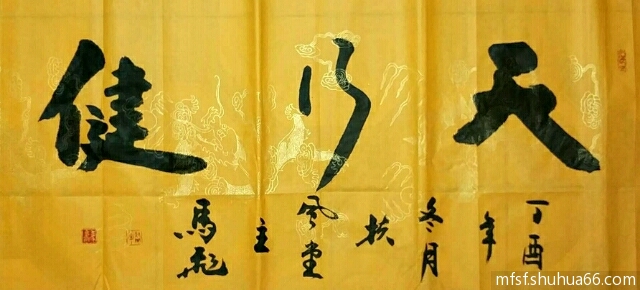 天行健
丁酉年冬月扶風堂主馬
mfsf.shuhua66.com